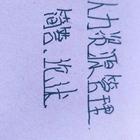 人力资源管理
简答、论述